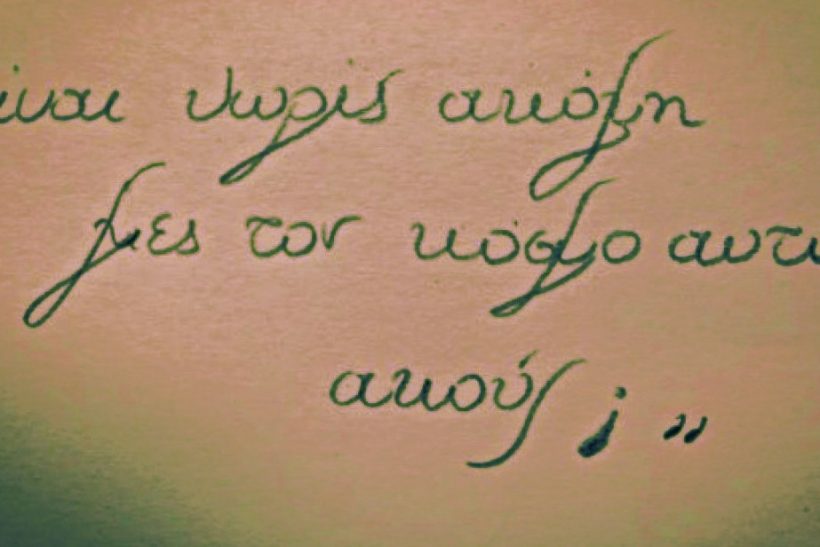 ίναι νωρίς ακόμη
μες τον κόσμο αυτ
ακούς ; "